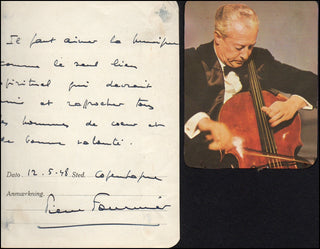 Il faut aimer la musique
comme le seul lien
spirituel qui devrait
unir et rapprocher tous
les hommes de cœur et
de bonne volonté.
Dato 12.5.48 Sted. Copenhague
Anmærkning.
Pierre Fournier